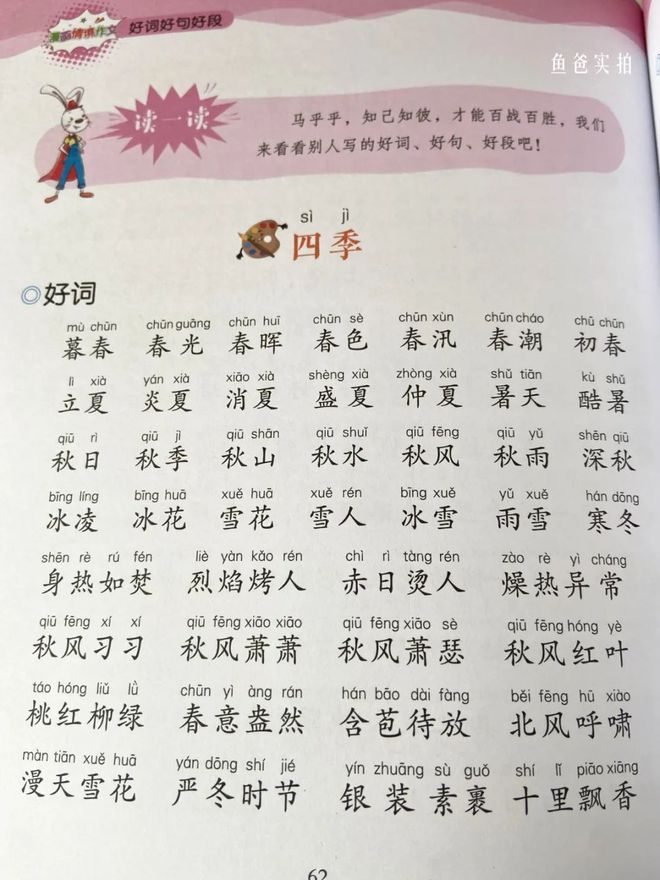 漫画情境作文 好词好句好段
鱼爸实拍
读一读
马乎乎，知己知彼，才能百战百胜，我们
来看看别人写的好词、好句、好段吧！
sì jì
四季
◎好词
mù chūn chūn guāng chūn huī chūn sè chūn xùn chūn cháo chū chūn
暮春 春光 春晖 春色 春汛 春潮 初春
lì xià yán xià xiāo xià shèng xià zhòng xià shǔ tiān kù shǔ
立夏 炎夏 消夏 盛夏 仲夏 暑天 酷暑
qiū rì qiū jì qiū shān qiū shuǐ qiū fēng qiū yǔ shēn qiū
秋日 秋季 秋山 秋水 秋风 秋雨 深秋
bīng líng bīng huā xuě huā xuě rén bīng xuě yǔ xuě hán dōng
冰凌 冰花 雪花 雪人 冰雪 雨雪 寒冬
shēn rè rú fén liè yàn kǎo rén chì rì tàng rén zào rè yì cháng
身热如焚 烈焰烤人 赤日烫人 燥热异常
qiū fēng xí xí qiū fēng xiāo xiāo qiū fēng xiāo sè qiū fēng hóng yè
秋风习习 秋风萧萧 秋风萧瑟 秋风红叶
táo hóng liǔ lǜ chūn yì àng rán hán bāo dài fàng běi fēng hū xiào
桃红柳绿 春意盎然 含苞待放 北风呼啸
màn tiān xuě huā yán dōng shí jié yín zhuāng sù guǒ shí lǐ piāo xiāng
漫天雪花 严冬时节 银装素裹 十里飘香
62